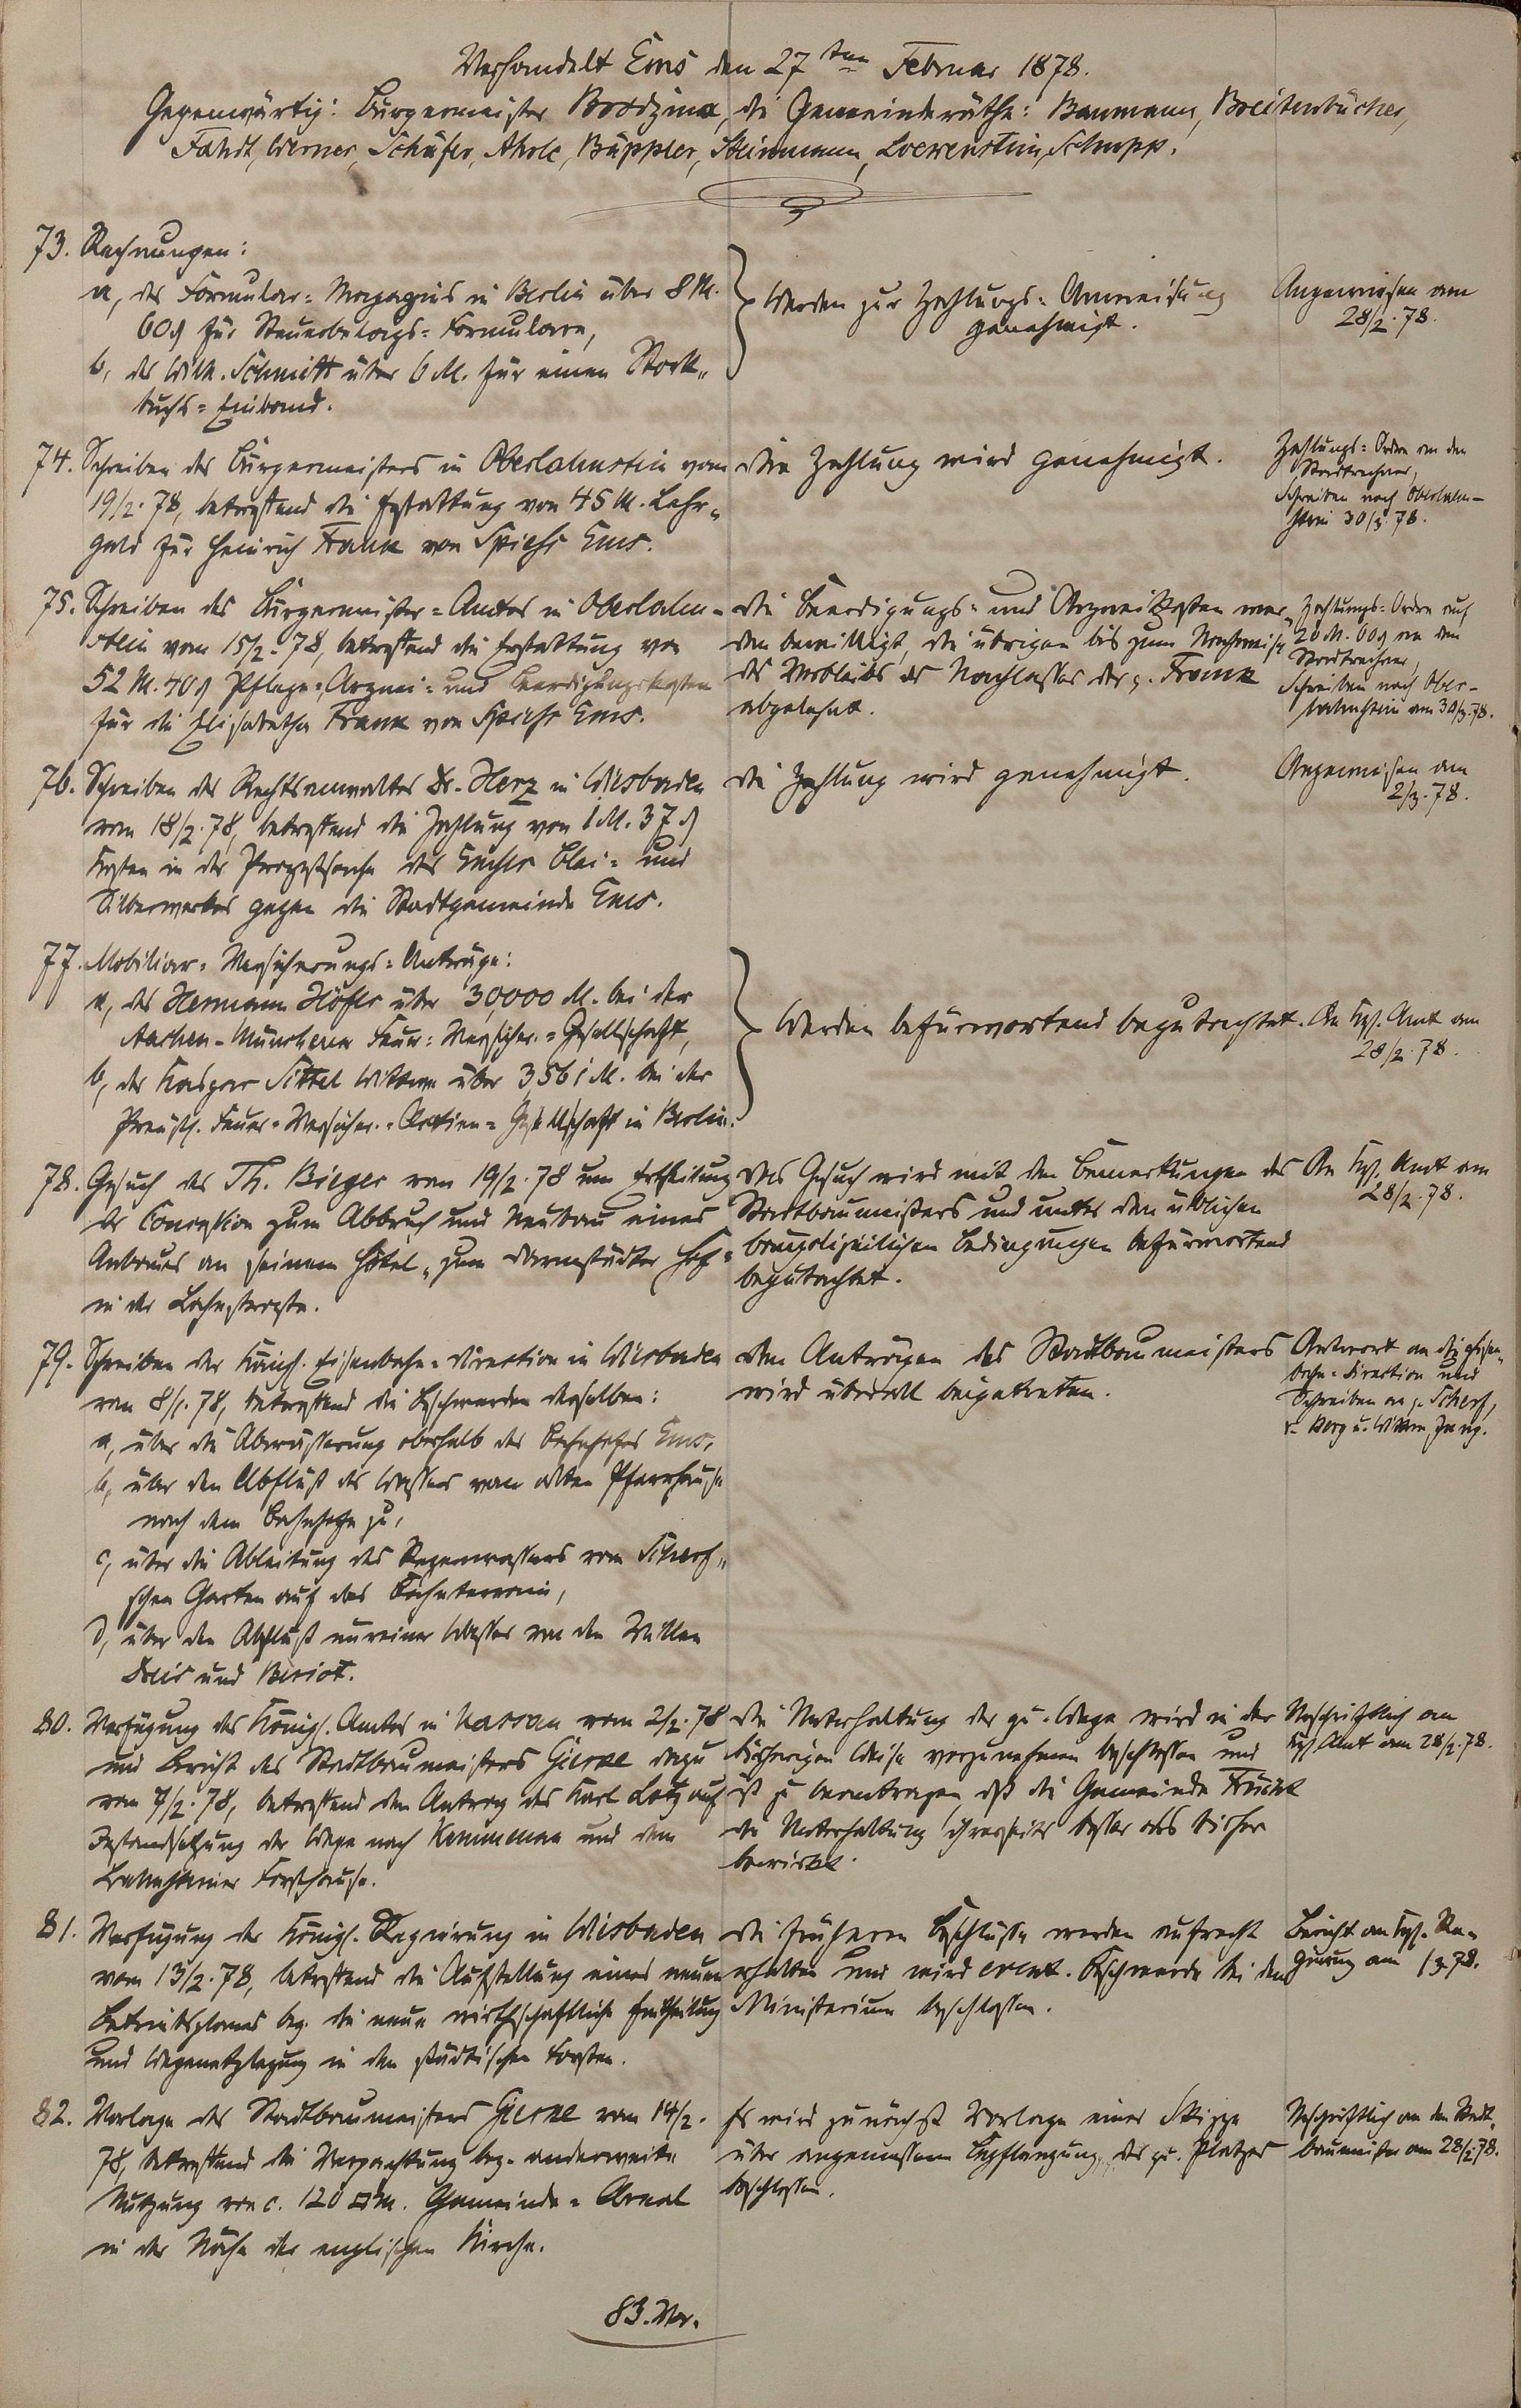 Verhandelt Ems den 27ten Februar 1878.
Gegenwärtig: Bürgermeister Brodzina, die Gemeinderäthe: Baumann, Breitenbücher,
Fahdt, Werner, Schäfer, Ahole, Büppler, Steinmann, Loewenstein, Schupp.
73. Rechnungen:
a, des Formular=Magazins in Berlin über 8 M.
60 ₰ für Steuerbelags=Formulare,
b, des Wilh. Schmitt über 6 M. für einen Stock„
buchs=Einband.
Werden zur Zahlungs=Anweisung
genehmigt.
Angewiesen am
28/2. 78.
74. Schreiben des Bürgermeisters in Oberlahnstein vom
19/2. 78, betreffend die Erstattung von 45 M. Lehr„
geld für Heinrich Frank von Spieß Ems.
Die Zahlung wird genehmigt.
Zahlungs=Ordre an den
Stadtrechner,
Schreiben nach Oberlahn-
stein 30/3. 78.
75. Schreiben des Bürgermeister=Amtes in Oberlahn-
stein vom 15/2. 78, betreffend die Erstattung von
52 M. 40 ₰ Pflege=, Arznei= und Beerdigungskosten
für die Elisabetha Frank von Spieß Ems.
Die Beerdigungs= und Arzneikosten wer„
den bewilligt, die übrigen bis zum Nachweise
des Verbleibs des Nachlasses der p. Frank
abgelehnt.
Zahlungs=Ordre auf
20 M. 60 ₰ an den
Stadtrechner,
Schreiben nach Ober-
lahnstein am 30/3. 78.
76. Schreiben des Rechtsanwaltes Dr. Herz in Wiesbaden
vom 18/2. 78, betreffend die Zahlung von 1 M. 37 ₰
Kosten in der Prozeßsache des Emser Blei= und
Silberwerkes gegen die Stadtgemeinde Ems.
Die Zahlung wird genehmigt.
Angewiesen am
2/3. 78.
77. Mobiliar=Versicherungs=Anträge:
a, des Hermann Höfer über 30,000 M. bei der
Aachen-Münchener Feuer=Versicher.=Gesellschaft,
b, der Kaspar Sittel Wittwe über 3,561 M. bei der
Preuß. Feuer=Versicher.=Actien=Gesellschaft in Berlin.
Werden befürwortend begutachtet.
An Kgl. Amt am
28/2. 78.
78. Gesuch des Th. Bieger vom 19/2. 78 um Ertheilung
der Concession zum Abbruch und Neubau eines
Anbaues an seinem Hôtel „zum Darmstädter Hof"
in der Lahnstraße.
Das Gesuch wird mit den Bemerkungen des
Stadtbaumeisters und unter den üblichen
baupolizeilichen Bedingungen befürwortend
begutachtet.
An Kgl. Amt am
28/2. 78.
79. Schreiben der Königl. Eisenbahn=Direction in Wiesbaden
vom 8/1. 78, betreffend die Beschwerden derselben:
a, über die Abwässerung oberhalb des Bahnhofes Ems,
b, über den Abfluß des Wassers vom alten Pfarrhause
nach dem Bahnhofe zu,
c, über die Ableitung des Regenwassers vom Scherf„
schen Garten auf das Bahnterrain,
d, über den Abfluß unreiner Wasser von den Villen
und Beriot.
Den Anträgen des Stadtbaumeisters
wird überall beigetreten.
Antwort an die Eisen„
bahn=Direction und
Schreiben an p. Scherf,
Berg u. Wittwe Jung.
80. Verfügung des Königl. Amtes in Nassau vom 2/2. 78
und Bericht des Stadtbaumeisters Gierke dazu
vom 7/2. 78, betreffend den Antrag des Karl Lotz auf
Instandsetzung der Wege nach Kemmenau und dem
Lahnsteiner Forsthause.
Die Unterhaltung der qu. Wege wird in der
bisherigen Weise vorzunehmen beschlossen und
ist zu beantragen, daß die Gemeinde Frücht
die Unterhaltung ihrerseits besser als bisher
bewirkt.
Urschriftlich an
Kgl. Amt am 28/2. 78.
81. Verfügung der Königl. Regierung in Wiesbaden
vom 13/2. 78, betreffend die Aufstellung eines neuen
Betriebsplanes bez. die neue wirthschaftliche Eintheilung
und Wegenetzlegung in den städtischen Forsten.
Die früheren Beschlüsse werden aufrecht
erhalten und wird event. Beschwerde bei dem
Ministerium beschlossen.
Bericht an Kgl. Re„
gierung am 1/3. 78.
82. Vorlage des Stadtbaumeisters Gierke vom 14/2.
78, betreffend die Verpachtung bez. anderweite
Nutzung von c. 120 □M. Gemeinde=Areal
in der Nähe der englischen Kirche.
Es wird zunächst Vorlage einer Skizze
über angemessene Bepflanzung des qu. Platzes
beschlossen.
Urschriftlich an den Stadt„
baumeister am 28/2. 78.
83. Ver.